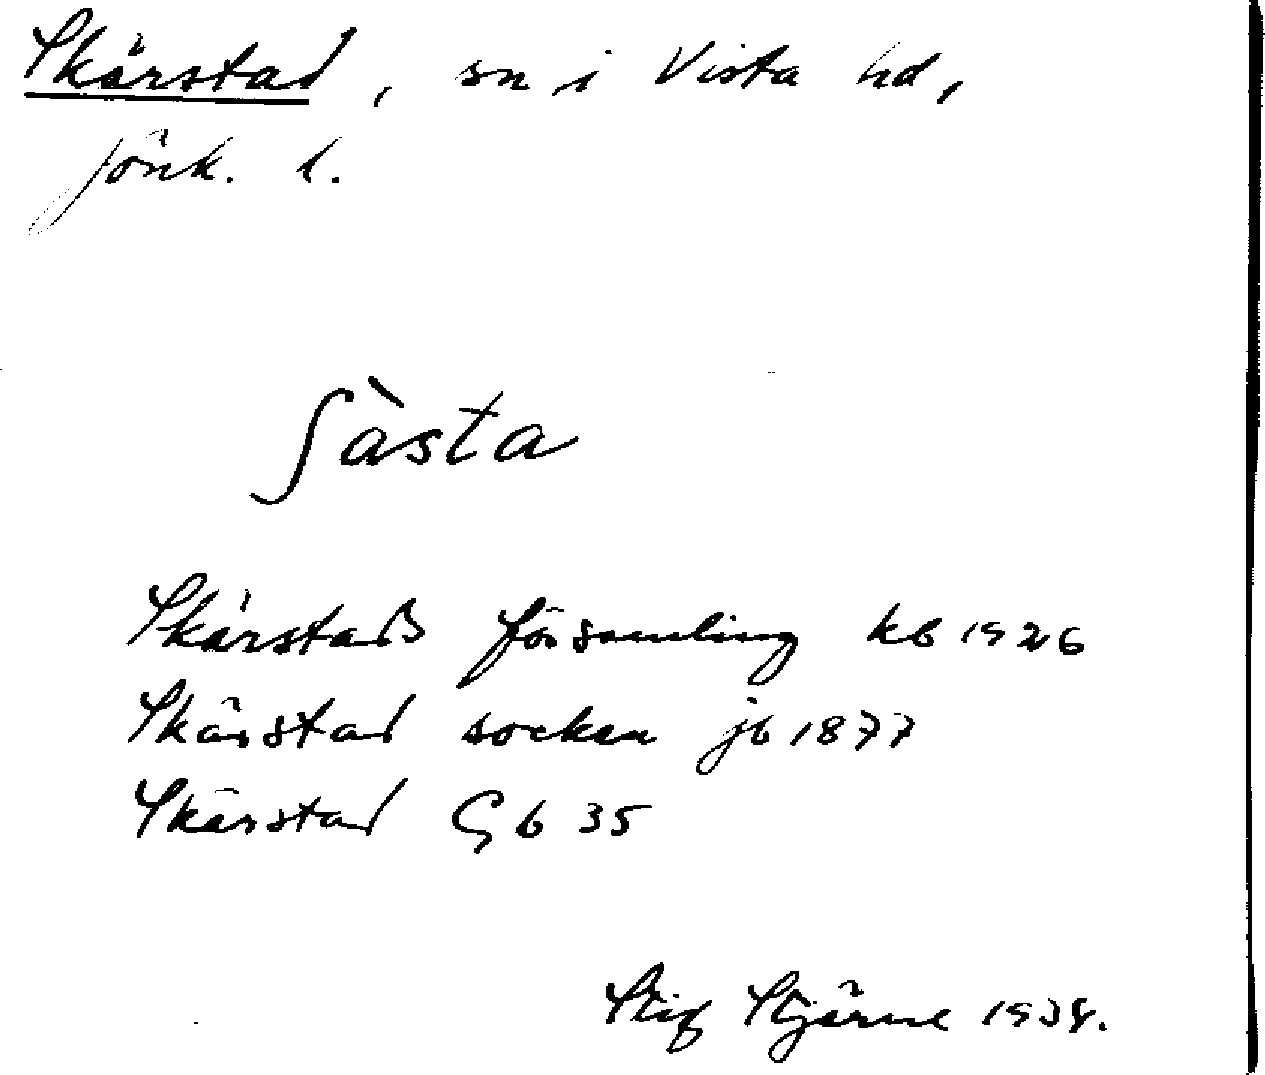 Skärstad, sn i Vista hd,
Jönk. l.
ʃàsta
Skärstads församling kb 1926
Skärstad socken jb 1877
Skärstad Gb 35
Stig Stjärne